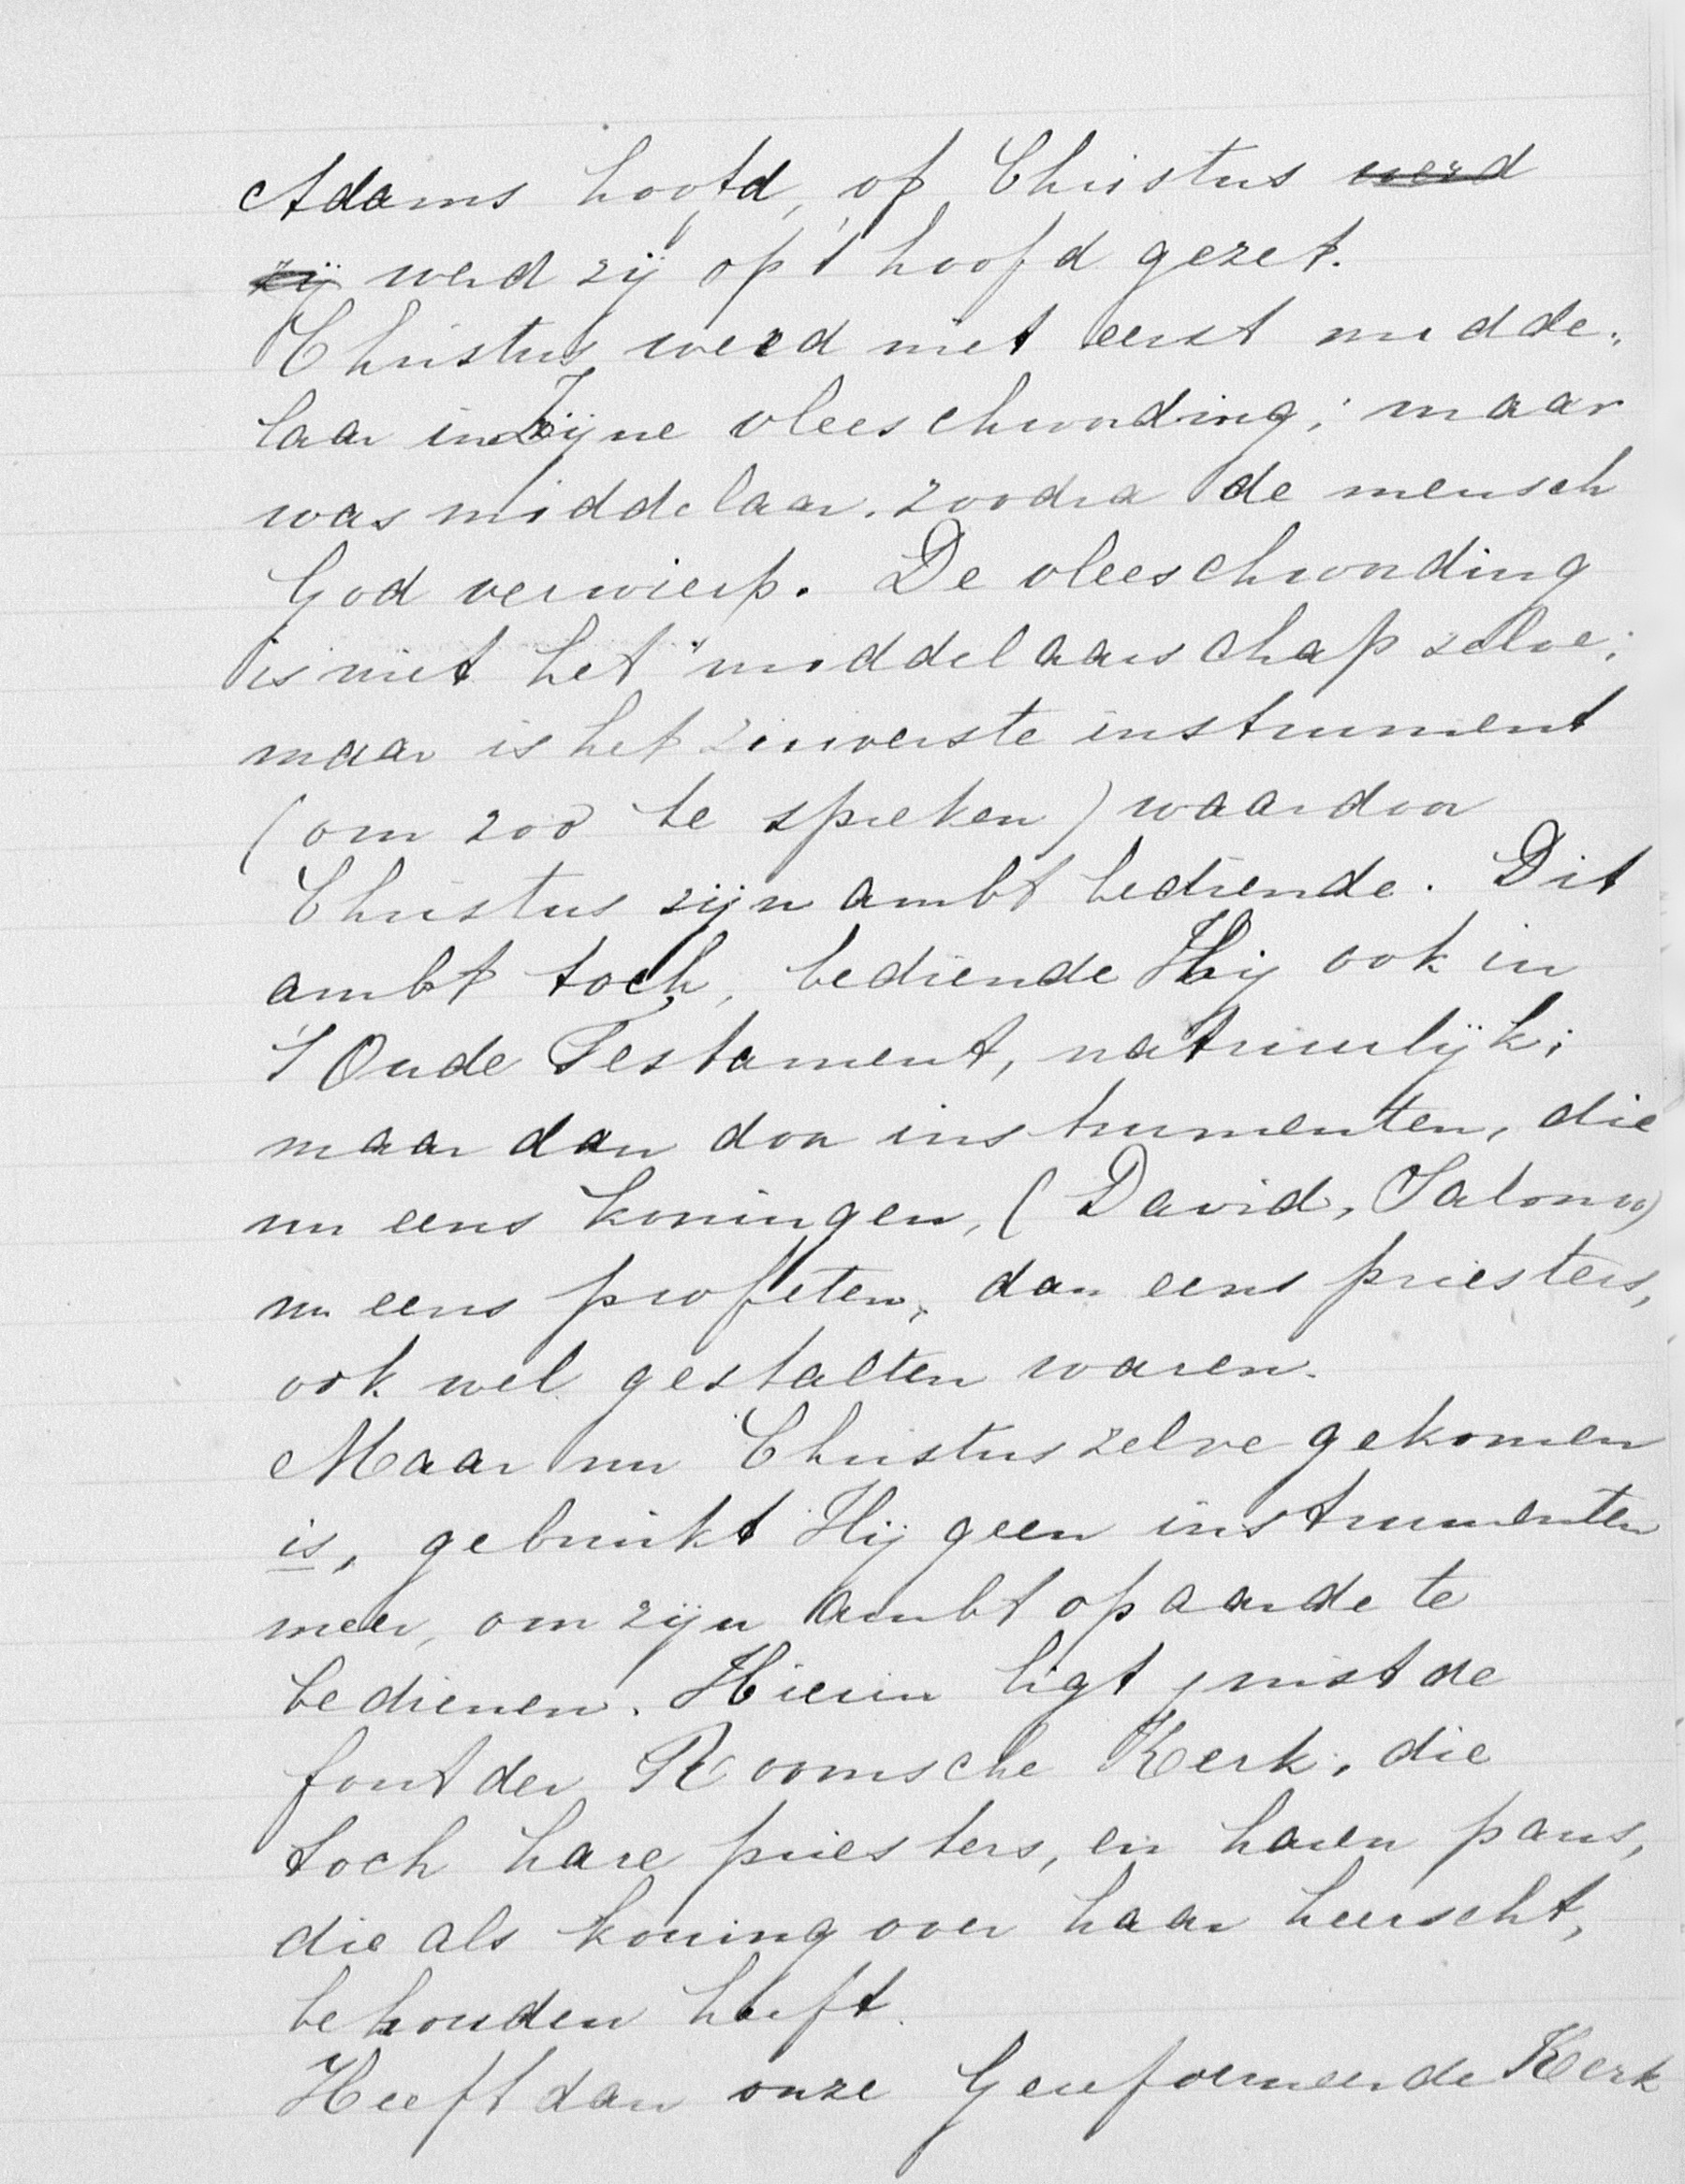 Adams hoofd, of Christus werd
zij werd zij op 't hoofd gezet.
Christus werd niet eerst midde-
laar in Zijne vleeschwording; maar
was middelaar, zoodra de mensch
God verwierp. De vleeschwording
is niet het middelaarschap zelve;
maar is het zuiverste instrument
(om zoo te spreken) waardoor
Christus zijn ambt bediende. Dit
ambt toch, bediende Hij ook in
't Oude Testament, natuurlijk;
maar dan door instrumenten, die
nu eens koningen, (David, Salomo)
nu eens profeten, dan eens priesters,
ook wel gestalten waren.
Maar nu Christus zelve gekomen
is, gebruikt Hij geen instrumenten
meer, om zijn ambt op aarde te
bedienen. Hierin ligt juist de
fout der Roomsche Kerk, die
toch hare priesters, en haren paus,
die als koning over haar heerscht,
behouden heeft.
Heeft dan onze Gereformeerde Kerk